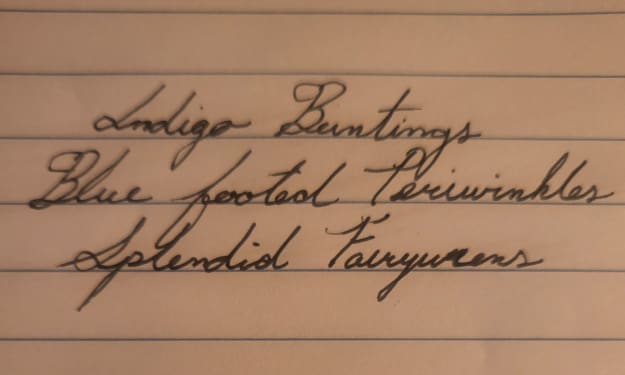 Indigo Buntings
Blue footed Periwinkles
Splendid Fairywrens